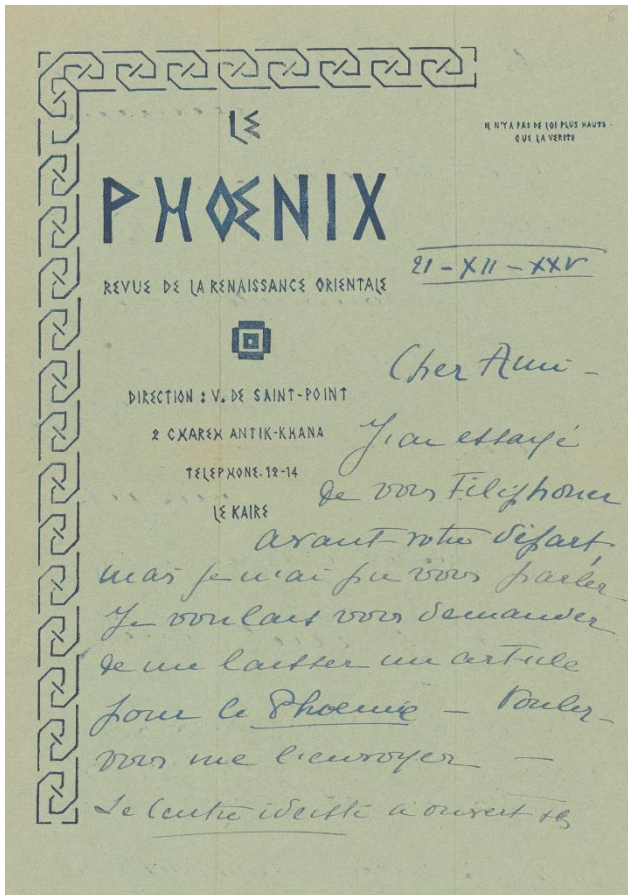 6
LE
IL N'Y A PAS DE LOI PLUS HAUTE
QUE LA VERITE
PHŒNIX
21-XII-XXV
REVUE DE LA RENAISSANCE ORIENTALE
Cher Ami -
DIRECTION : V. DE SAINT-POINT
2 CHAREH ANTIK-KHANA
J'ai essayé
TELEPHONE. 12-14
de vous téléphoner
LE KAIRE
avant votre départ,
mais je n'ai pu vous parler.
Je voulais vous demander
de me laisser un article
pour le Phoenix - Voulez-
vous me l'envoyer -
Le Centre idéiste a ouvert ses